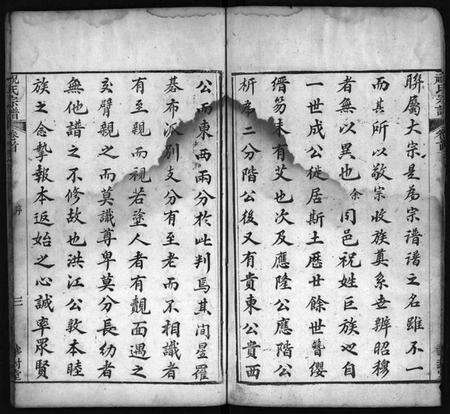 聨屬大宗是為宗譜譜之名雖不一
而其所以敬宗收族奠系世辨昭穆
者無以異也余同邑祝姓巨族也自
一世成公徙居斯土歴廿餘世簪纓
縉笏未有艾也次及應隆公應階公
析為二分階公後又有貴東公貴西
公而東西兩分於此判焉其間星羅
碁布派别支分有至老而不相識者
有至親而視若塗人者有覿面遇之
交臂親之而莫識尊卑莫分長幼者
無他譜之不修故也洪江公敦本睦
族之念摯報本返始之心誠率眾賢
祝氏宗譜
卷首
序
三